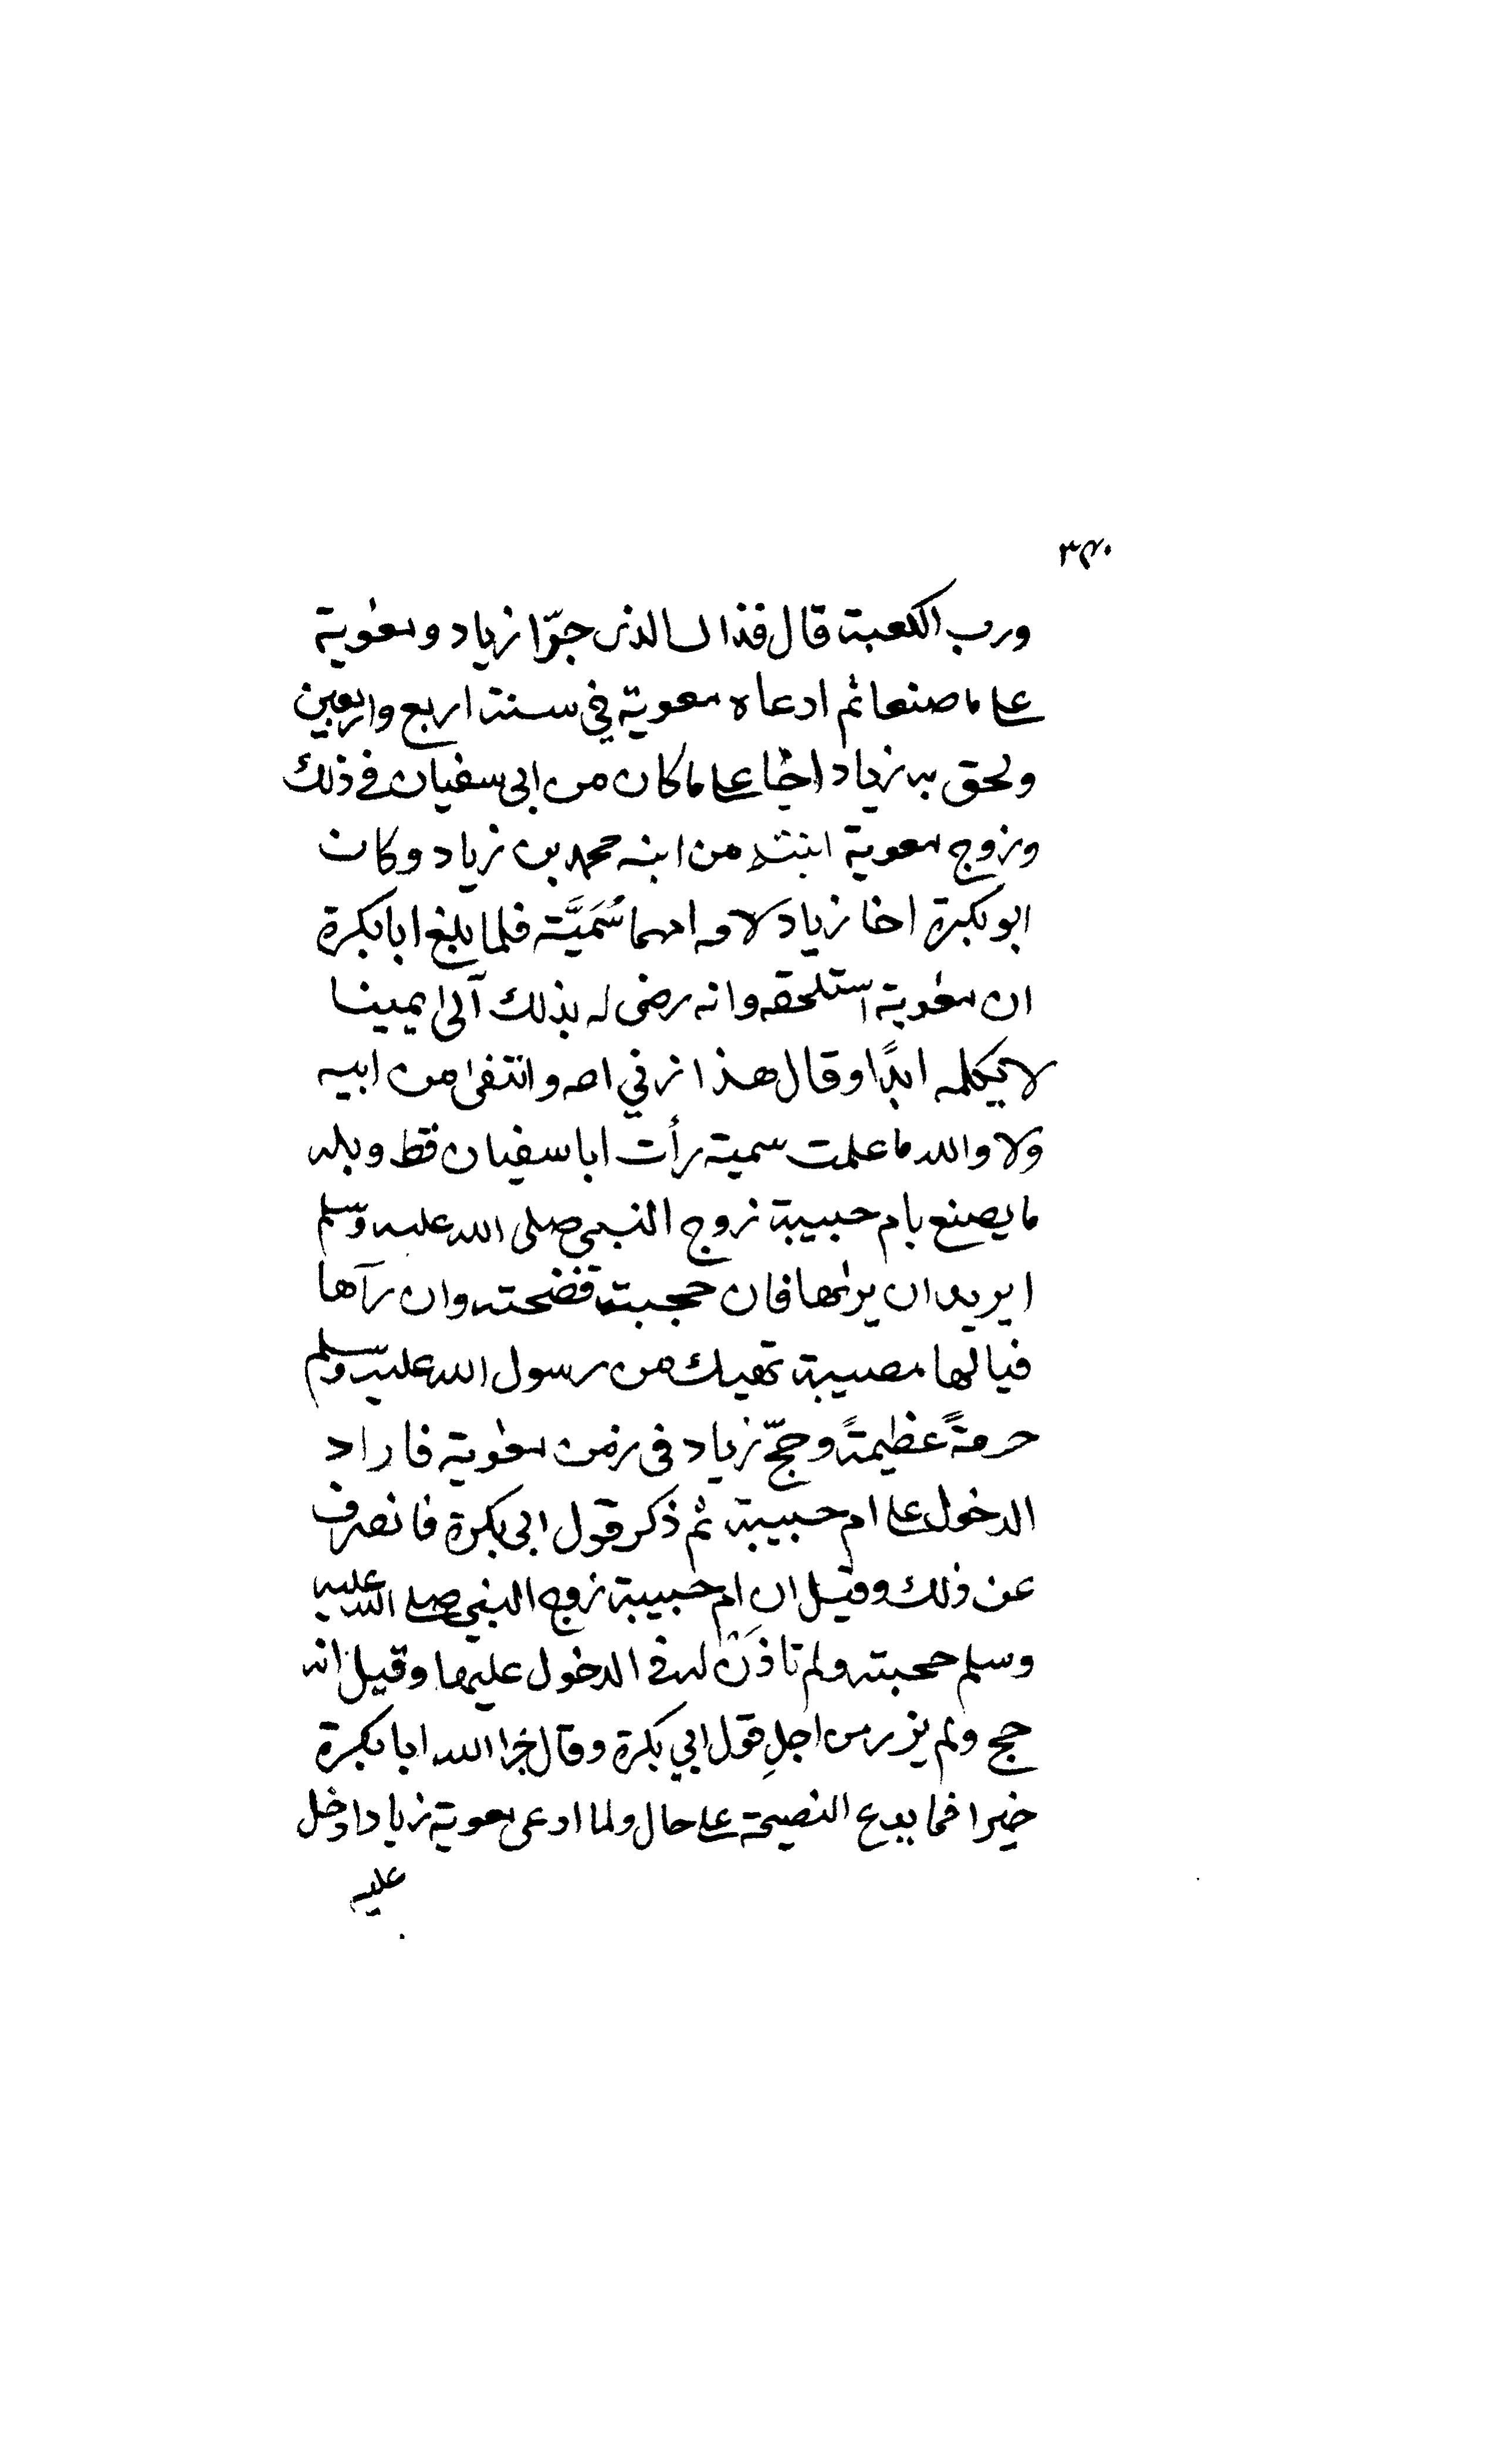 ٣٤٠
ورب الكعبة قال فذاك الذى جرّا زياد ومعوية
على ما صنعا ثم ادعاه معوية في سنة اربع واربعين
ولحق به زياد اخا على ما كان من ابى سفيان فى ذلك
وزوج معوية ابنته من ابنه محمد بن زياد وكان
ابو بكرة اخا زياد لامه امهما سُمَيَّة فلما بلغ ابا بكرة
ان معوية استلحقه وانه رضى له بذلك آلى يمينا
لا يكلمه ابدًا وقال هذا زنى امه وانتفى من ابيه
ولا والله ما علمت سمية رأت ابا سفيان قط ويله
ما يصنع بام حبيبة زوج النبى صلى الله عليه وسلم
ايريد ان يراها فان حجبته فضحته وان رآها
فيالها مصيبة تهيك من رسول الله عليه وسلم
حرمةً عظيمةً وحجّ زياد فى زمن معوية فاراد
الدخول على ام حبيبة ثم ذكر قول ابى بكرة فانصرف
عن ذلك وقيل ان ام حبيبة زوج النبى صلى الله عليه
وسلم حجبته ولم تاذن له فى الدخول عليها وقيل انه
حج ولم يزر من اجلِ قول ابي بكرة وقال جزا الله ابا بكرة
خيرا فما يدع النصيحة على حال ولما ادعى معوية زيادا دخل
عليه